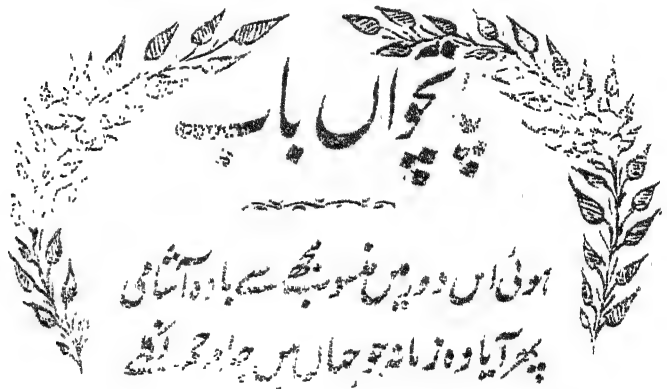 پنچواں باب
ہوئی اس دور میں منسوب مجھ سے بادہ آشامی
پھر آیا وہ زمانہ جو جہاں میں جام جم نکلے